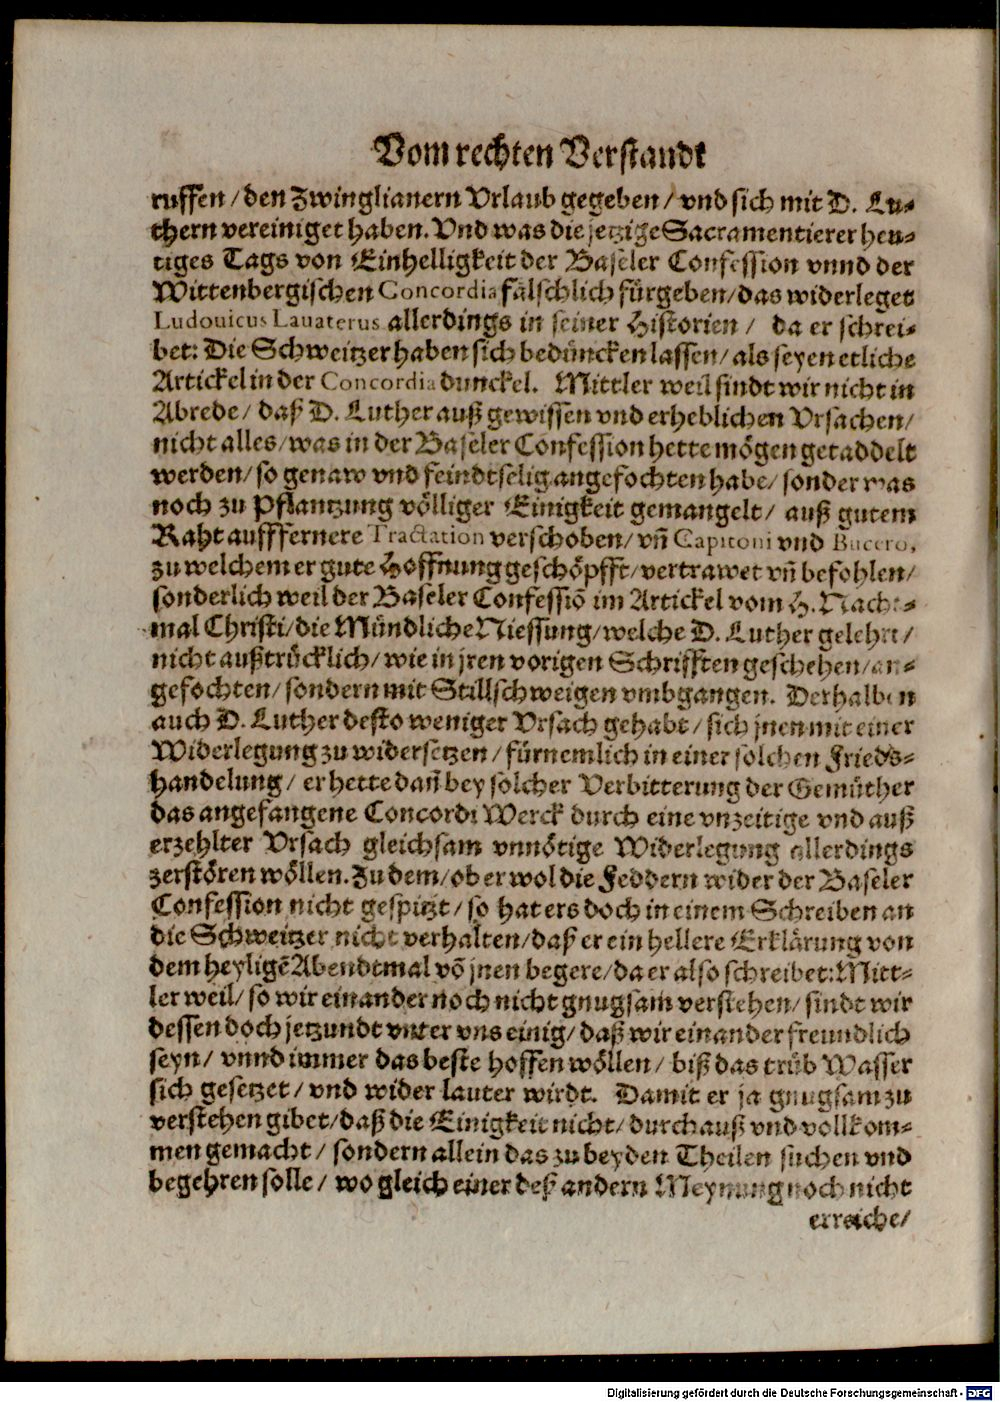 Vom rechten Verstandt
ruffen / den Zwinglianern Vrlaub gegeben / vnd sich mit D. Lu-
thern vereiniget haben. Vnd was die jetzige Sacramentierer heu-
tiges Tags von Einhelligkeit der Baseler Confession vnnd der
Wittenbergischen Concordia fälschlich fürgeben / das widerleget
Ludouicus Lauaterus allerdings in seiner Historien / da er schrei-
bet: Die Schweitzer haben sich beduncken lassen / als seyen etliche
Artickel in der Concordia dunckel. Mittler weil sindt wir nicht in
Abrede / daß D. Luther auß gewissen vnd erheblichen Vrsachen /
nicht alles / was in der Baseler Confession hette mögen getaddelt
werden / so genaw vnd feindtselig angefochten habe / sonder was
noch zu Pflantzung völliger Einigkeit gemangelt / auß gutem
Raht aufffernere Tractation verschoben / vñ Capitoni vnd Bucero,
zu welchem er gute Hoffnung geschöpfft / vertrawet vñ befohlen /
sonderlich weil der Baseler Confessiõ im Artickel vom H. Nacht-
mal Christi / die Mündliche Niessung / welche D. Luther gelehrt /
nicht außtrücklich / wie in jren vorigen Schrifften geschehen / an-
gefochten / sondern mit Stillschweigen vmbgangen. Derhalben
auch D. Luther desto weniger Vrsach gehabt / sich jnen mit einer
Widerlegung zu widersetzen / fürnemlich in einer solchen Frieds-
handelung / er hette dañ bey solcher Verbitterung der Gemüther
das angefangene Concordi Werck durch eine vnzeitige vnd auß
erzehlter Vrsach gleichsam vnnötige Widerlegung allerdings
zerstören wöllen. Zu dem / ob er wol die Feddern wider der Baseler
Confession nicht gespitzt / so hat ers doch in einem Schreiben an
die Schweitzer nicht verhalten / daß er ein hellere Erklärung von
dem heyligẽ Abendtmal võ jnen begere / da er also schreibet: Mitt-
ler weil / so wir einander noch nicht gnugsam verstehen / sindt wir
dessen doch jetzundt vnter vns einig / daß wir einander freundlich
seyn / vnnd immer das beste hoffen wöllen / biß das trüb Wasser
sich gesetzet / vnd wider lauter wirdt. Damit er ja gnugsam zu
verstehen gibet / daß die Einigkeit nicht / durchauß vnd vollkom-
men gemacht / sondern allein das zu beyden Theilen suchen vnd
begehren solle / wo gleich einer deß andern Meynung noch nicht
erreiche /
Digitalisierung gefördert durch die Deutsche Forschungsgemeinschaft - DFG